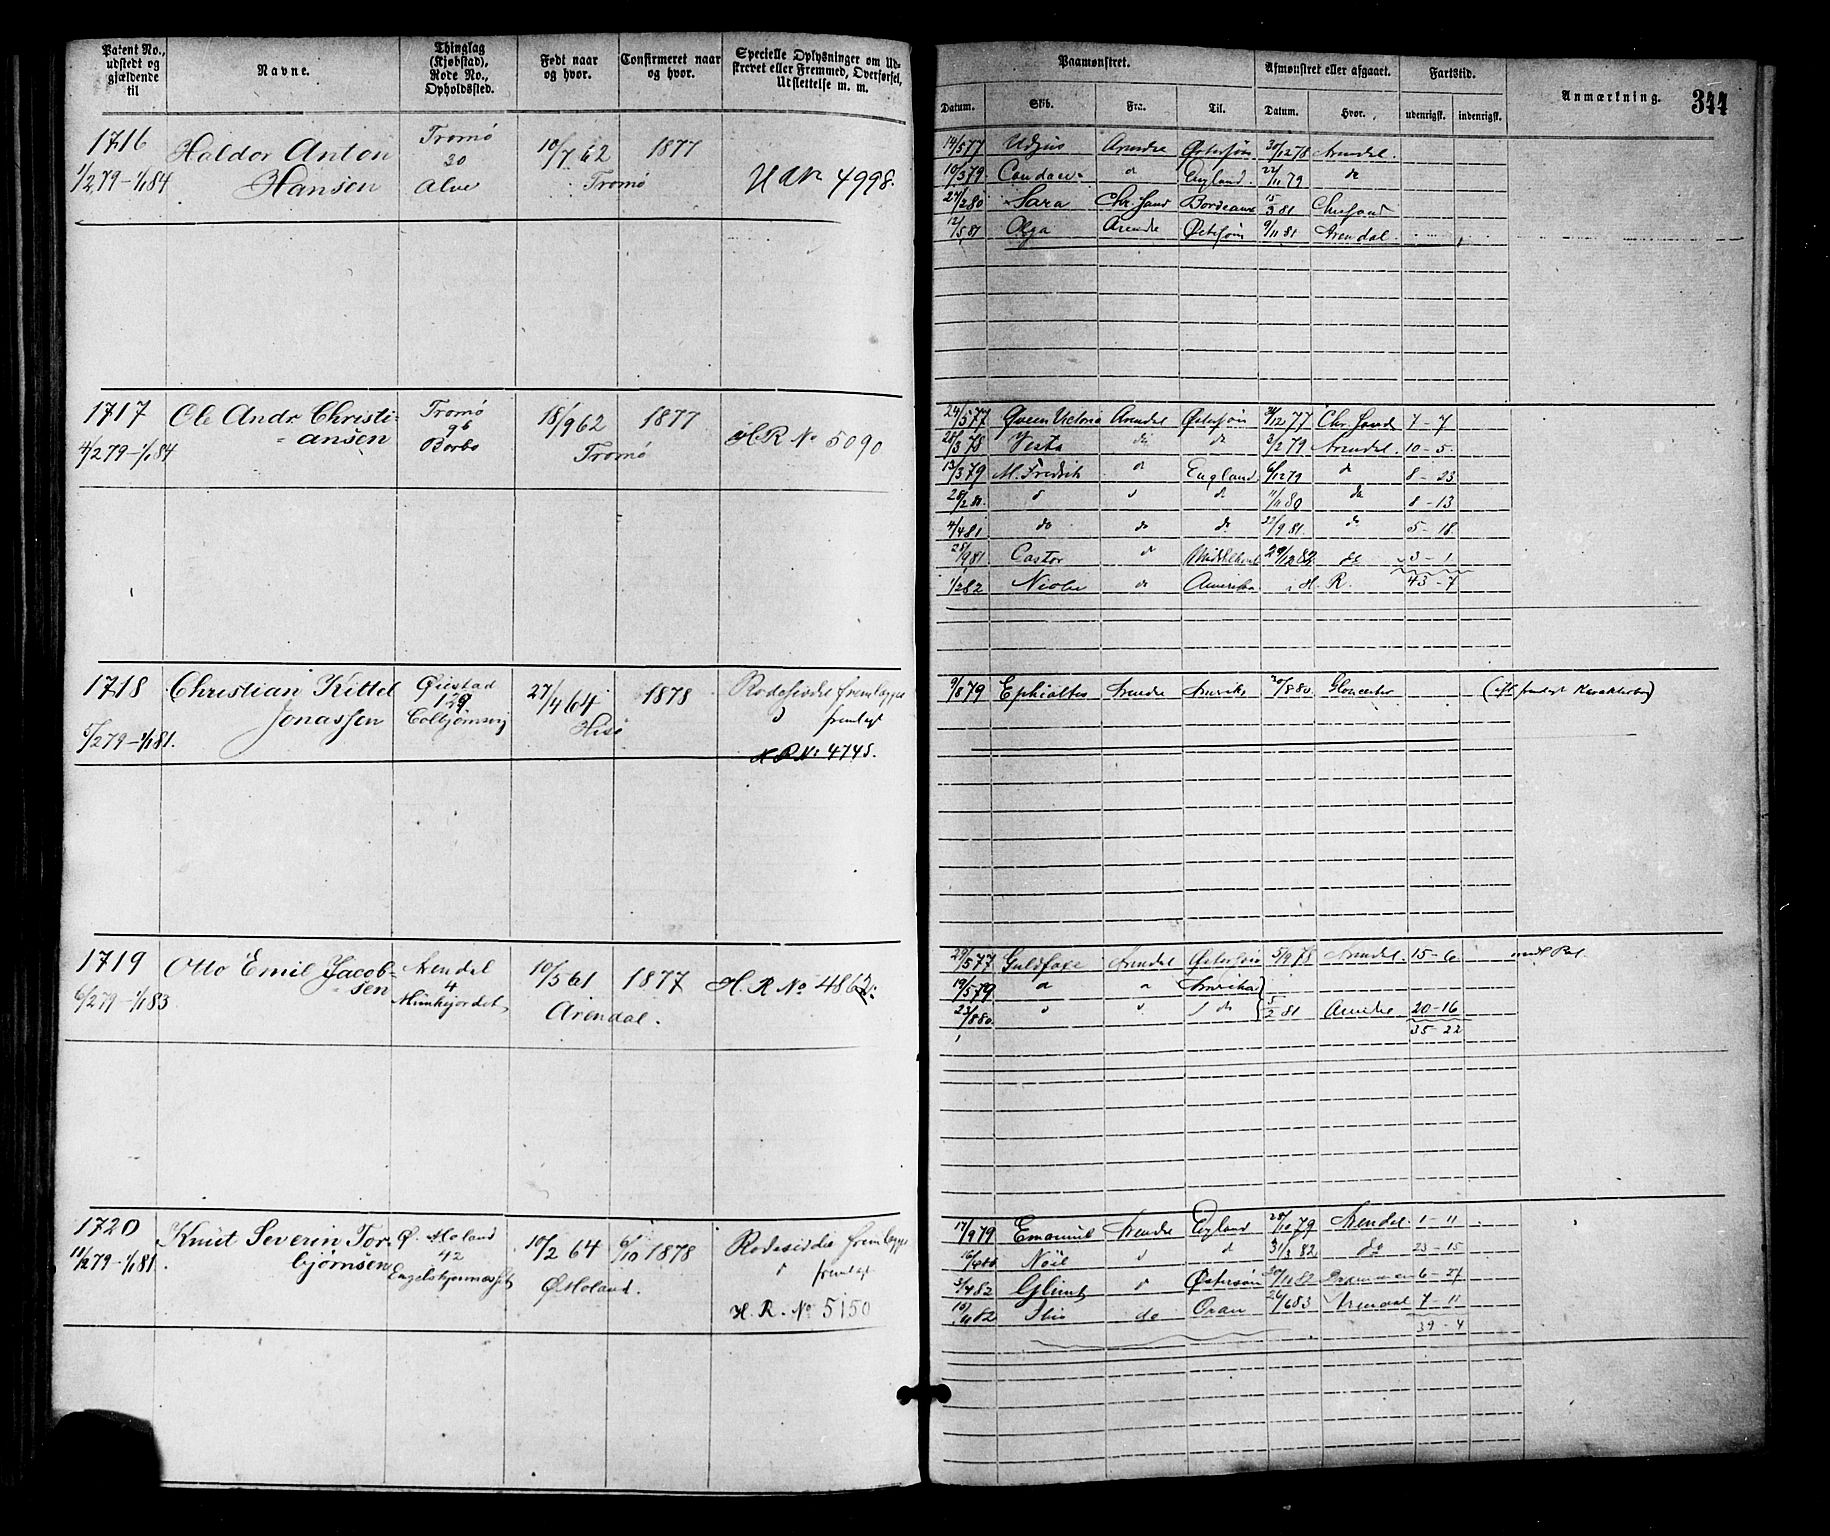 Patent No., udstedt og gjældende til
Navne.
Thinglag (Kjøbstad), Rode No., Opholdssted.
Født naar og hvor.
Confirmeret naar og hvor.
Specielle Oplysninger om Udskrevet eller Fremmed, Overførsel, Udslettelse m. m.
Paamønstret.
Afmønstret eller afgaaet.
Fartstid.
Anmærkning.
344
Datum. Skib. Fra. Til. Datum. Hvor. udenrigsk. indenrigsk.
1716 Haldor Anton Tromø 10/7 62 1877
1/2 79–1/1 84 Hansen 30 Alve Tromø 4998.
14/5 77 Arendal Østersjøen 30/12 78 Arendal.
10/3 79 England. 22/11 79 do
27/2 80 Sara Chr.sand Bordeaux 15/3 81 Chrsand
12/5 81 Olga Arendal Østersjøen 9/11 81 Arendal.
1717 Ole Andr. Christi- Tromø 18/9 62 1877
4/2 79–1/1 84 ansen 96 Borbo Tromø H.R No 5090
24/5 77 Queen Victoria Arendal Østersjøen 31/12 77 Chr. sand 7–7
28/3 78 Vesta do do 3/2 79 Arendal. 10–5.
13/3 79 M. Fredrik do England 6/12 79 do 8–23
28/2 80. do do do 11/11 80 do 8–13
4/4 81 do do do 22/9 81. do 5–18.
28/9 81 Castor do 29/12 82 do 3–1
1/2 82 Niobe do Amerika i H. R. 43–7
1718 Christian Kittel Øiestad 27/4 64 1878
5/2 79–1/1 81. Jonassen 129. Colbjørnsvig Hisø fremlagt
H R No 4745.
9/8 79 Ephialtes Arendal Amerika 20/8 80. Gloucester
1719 Otto Emil Jacob- Arendal 10/5 61 1877
6/2 79–1/1 83 sen 4 Arendal.
29/5 77 Guldfaxe Arendal Østersjøen 5/9 78 Arendal. 15–6
19/5 79 do do Amerika
23/8 80. do do do 5/2 81 Arendal 20–16
35–22
1720 Knut Severin Tor- Ø. Moland 10/2 64 6/10 1878
11/2 79–1/1 81. bjørnsen 42 Ø Moland. fremlagt
H. R. No 5150
17/9 79 Emanuel Arendal England 28/10 79 Arendal 1–11
Nöil do do 31/3 82 do 23–15
3/4 82 Glimt do Østersøen 30/11 82 Drammen 6–27
10/11 82 Ibis do Oran 26/6 83 Arendal 7–11
39–4